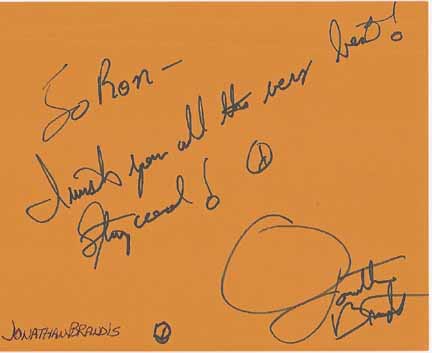 To Ron -
I wish you all the very best!
Stay cool!
Jonathan Brandis
JONATHAN BRANDIS